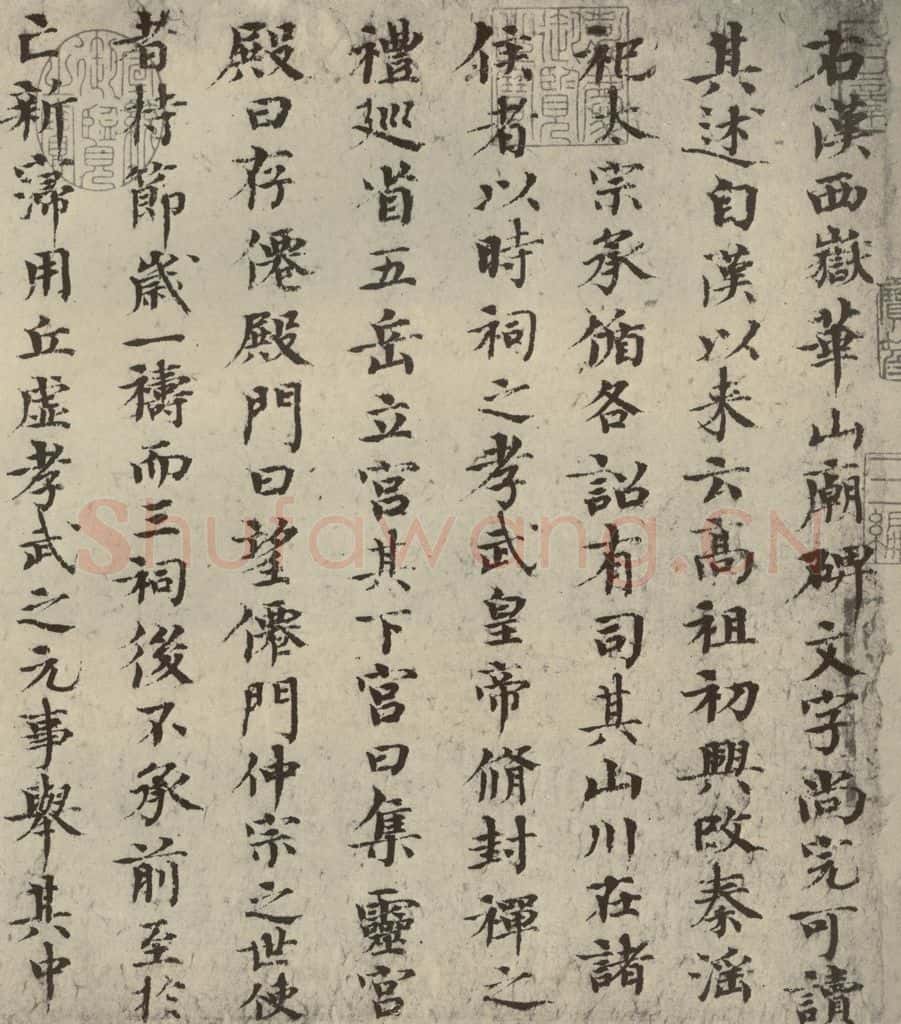 右漢西嶽華山廟碑文字尚完可讀
其述自漢以来云高祖初興改秦淫
祀太宗承循各詔有司其山川在諸
侯者以時祠之孝武皇帝脩封禪之
禮巡省五岳立宮其下宮曰集靈宮
殿曰存僊殿門曰望僊門仲宗之世使
者持節歲一禱而三祠後不承前至於
亡新寖用丘虛孝武之元事舉其中
Shufawang.CN